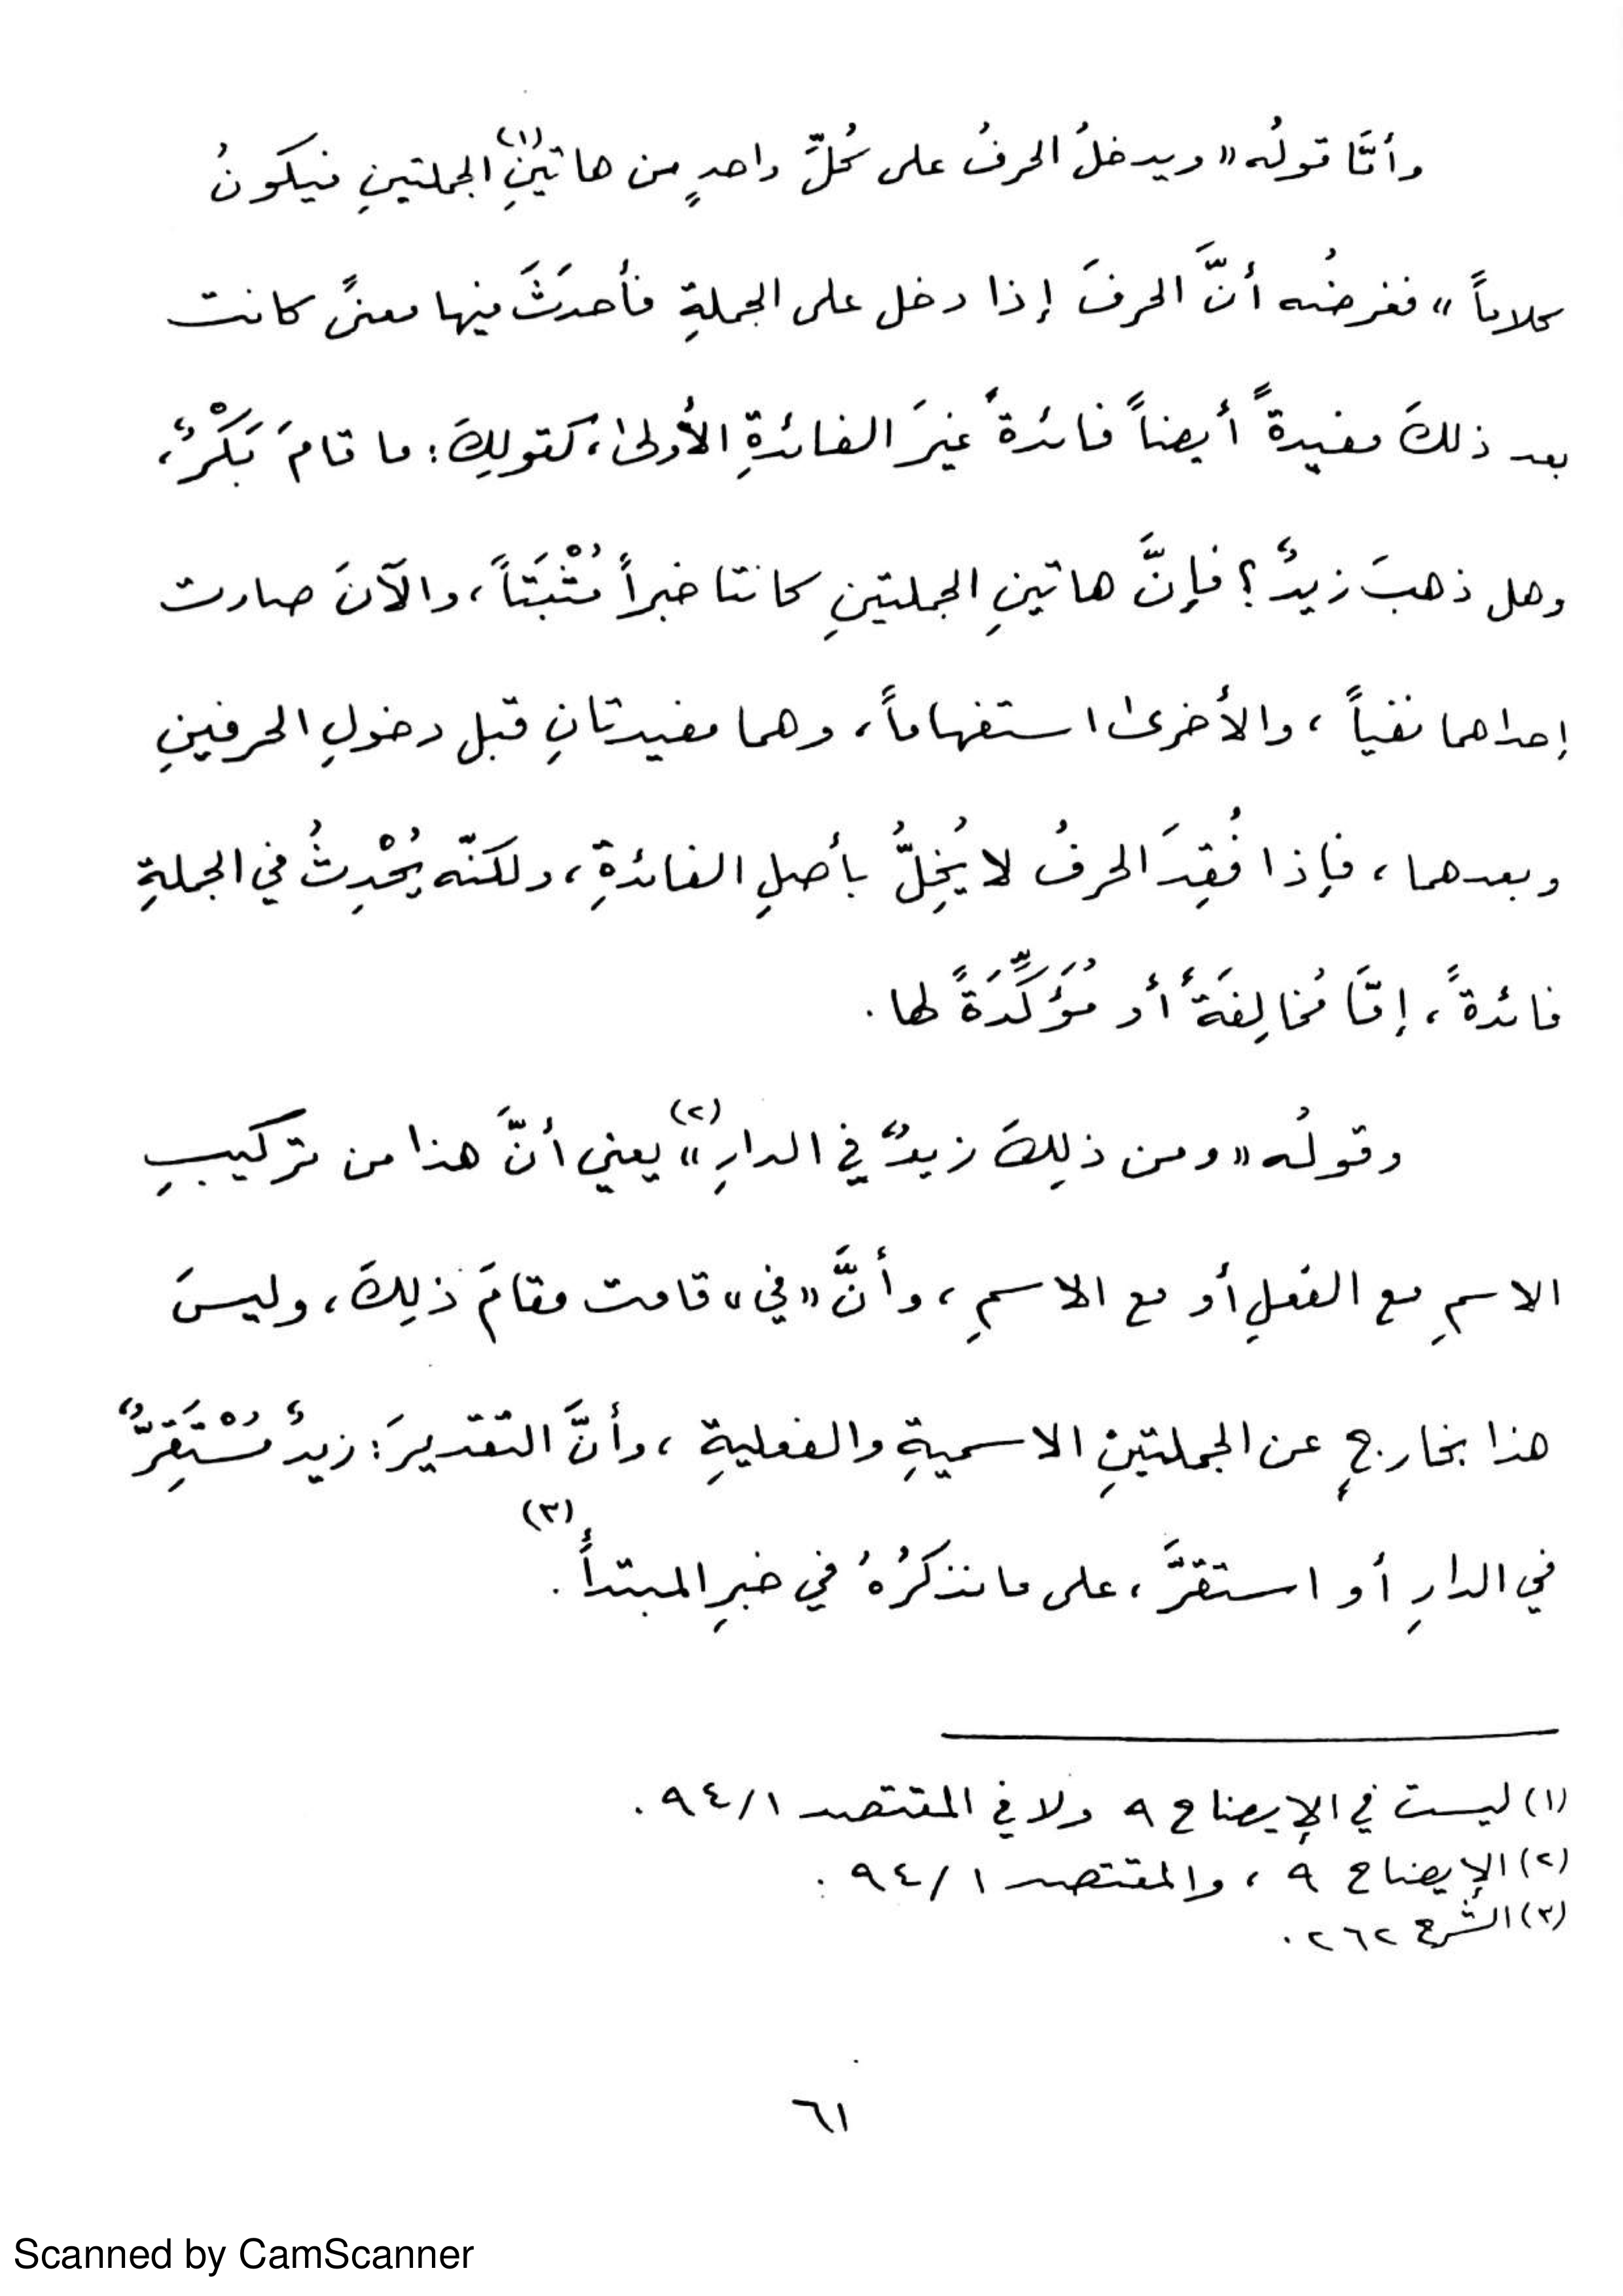 وأمَّا قولُه «ويدخلُ الحرفُ على كُلِّ واحدٍ من هاتَيْنِ(١) الجملتينِ فيكونُ
كلاماً» فغرضُه أنَّ الحرفَ إذا دخل على الجملةِ فأحدَثَ فيها معنىً كانت
بعد ذلكَ مفيدةً أيضاً فائدةً غيرَ الفائدةِ الأُولىٰ، كقولِكَ: ما قامَ بَكْرٌ،
وهل ذهبَ زيدٌ؟ فإنَّ هاتينِ الجملتينِ كانتا خبراً مُثْبَتاً، والآنَ صارت
إحداهما نفياً، والأخرىٰ استفهاماً، وهما مفيدتانِ قبل دخولِ الحرفينِ
وبعدهما، فإذا فُقِدَ الحرفُ لا يُخِلُّ بأصلِ الفائدةِ، ولكنّه يُحْدِثُ في الجملةِ
فائدةً، إمَّا مُخالِفَةً أو مُؤَكِّدَةً لها.
وقولُه «ومن ذلِكَ زيدٌ في الدارِ»(٢) يعني أنَّ هذا من تركيبِ
الاسمِ مع الفعلِ أو مع الاسمِ، وأنَّ «في» قامت مقامَ ذلِكَ، وليسَ
هذا بخارجٍ عن الجملتينِ الاسميةِ والفعليةِ، وأنَّ التقديرَ: زيدٌ مُسْتَقِرٌّ
في الدارِ أو استقرَّ، على ما نذكرُهُ في خبرِ المبتدأ(٣).
(١) ليست في الإيضاح ٩ ولا في المقتصد ٩٤/١.
(٢) الإيضاح ٩، والمقتصد ٩٤/١.
(٣) الشرح ٢٦٢.
٦١
Scanned by CamScanner